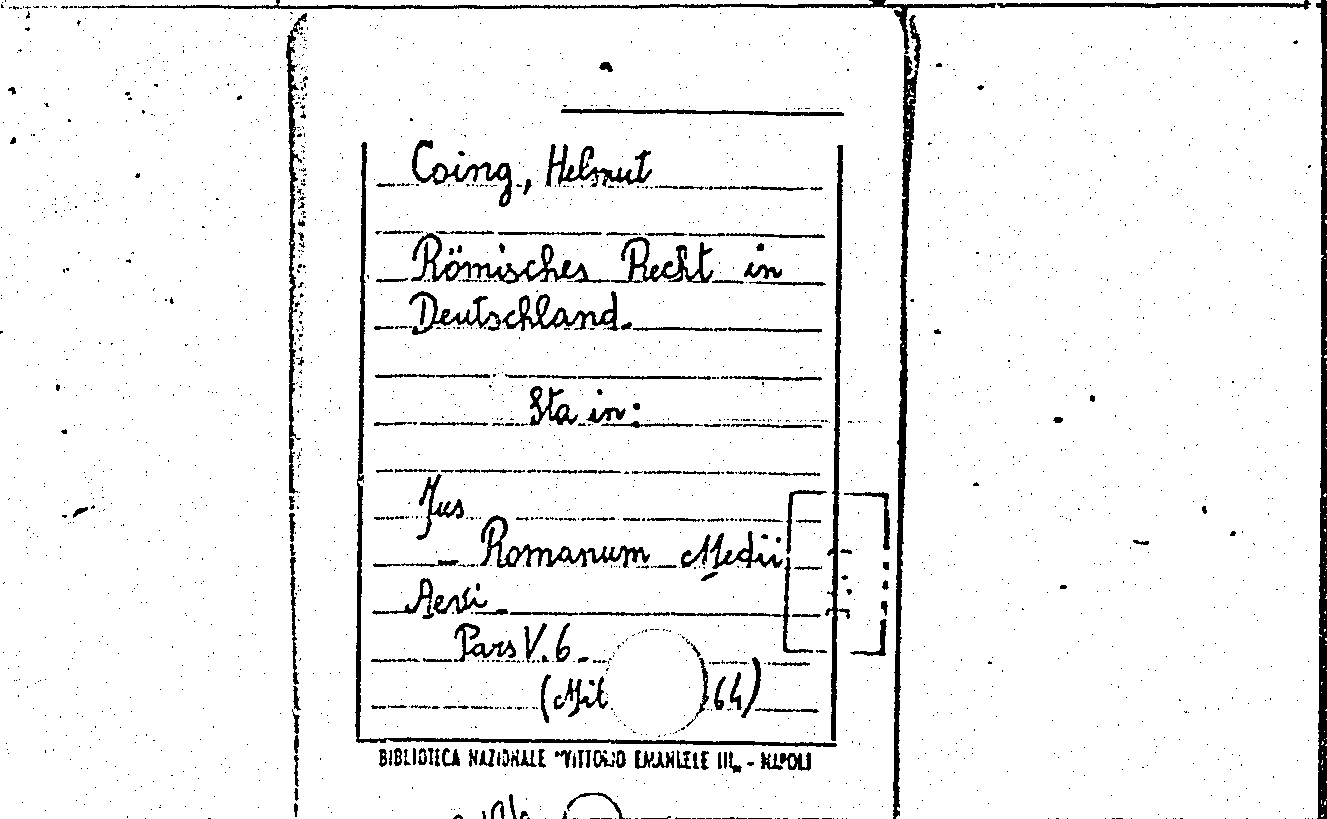 Coing, Helmut
Römisches Recht in
Deutschland.
Sta in:
Jus
Romanum Medii
Aevi.
Pars V. 6.
(Mil 64)
BIBLIOTECA NAZIONALE "VITTORIO EMANUELE III„ - NAPOLI